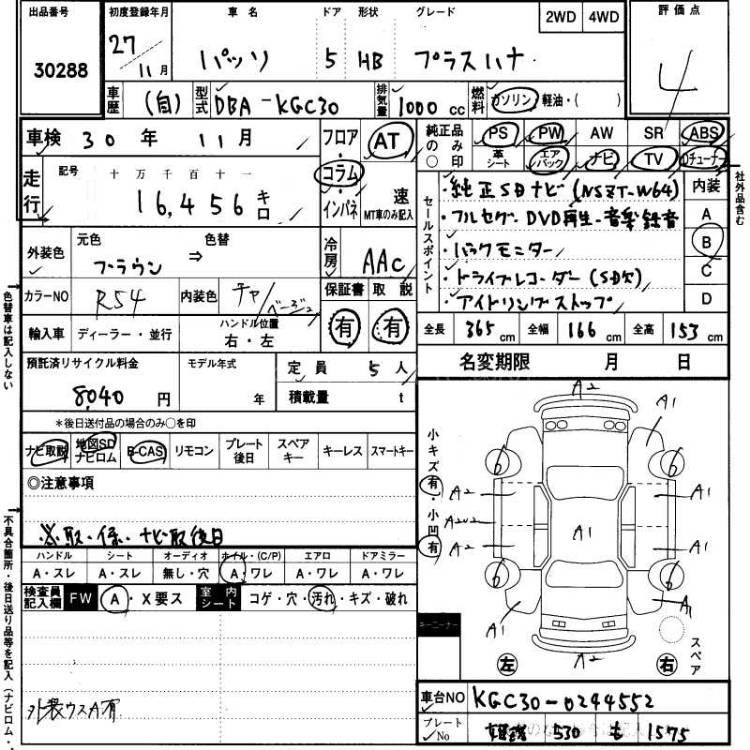 出品番号 初度登録年月 車名 ドア 形状 グレード 2WD 4WD 評価点
30288 27 11月 パッソ 5 HB プラスハナ 4
車歴 (自) 型式 DBA-KGC30 排気量 1000 cc 燃料 ガソリン・軽油・( )
車検 30年 11月 フロア・ AT 純正品のみ○印 PS PW AW SR ABS
コラム 革シート エアバック ナビ TV Dチューナー
走行 記号 十万千百十一 インパネ 速
16,456 キロ MT車のみ記入
社外品含む
セールスポイント ・純正SDナビ(NSZT-W64) 内装
・フルセグ・DVD再生・音楽録音 A
・バックモニター B
・ドライブレコーダー(SD欠) C
・アイドリングストップ D
外装色 元色 色替 冷房 AAC
ブラウン ⇒
カラーNO R54 内装色 チャ/ベージュ 保証書 取説
有 有
輸入車 ディーラー・並行 ハンドル位置
右・左
全長 365 cm 全幅 166 cm 全高 153 cm
名変期限 月 日
預託済リサイクル料金 モデル年式 定員 5人
8,040 円 年 積載量 t
*後日送付品の場合のみ○を印
ナビ取説 地図SD ナビロム B-CAS リモコン プレート後日 スペアキー キーレス スマートキー
◎注意事項
※取・保・ナビ取後日
ハンドル シート オーディオ ホイル・(C/P) エアロ ドアミラー
A・スレ A・スレ 無し・穴 A・ワレ A・ワレ A・ワレ
検査員記入欄 FW A・X要ス 室内シート コゲ・穴・汚れ・キズ・破れ
外装ウスA有
色替車は記入しない
不具合箇所・後日送り品等を記入(ナビロム・
小キズ 有 小凹 有
A2
A1
A2 A1
A2U2 A1
A2 A1
A1 A1
A2
左 右 スペア
コーナー
車台NO KGC30-0244552
プレートNo 530 も 1575